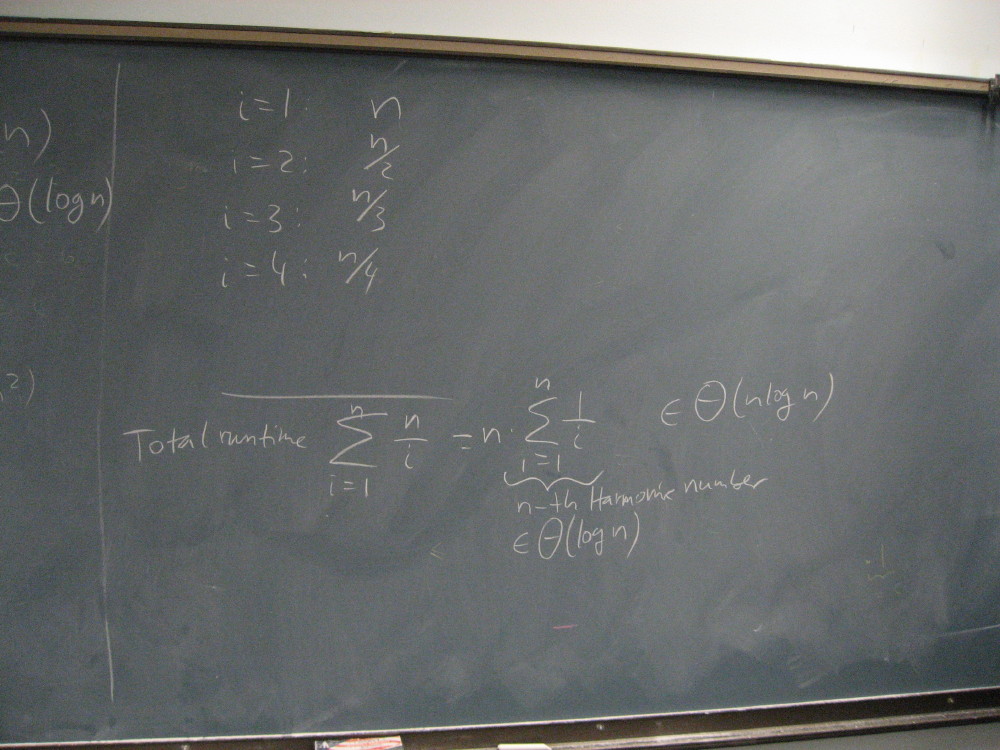 n)
Θ(log n)
²)
i=1: n
i=2: n/2
i=3: n/3
i=4: n/4
Total runtime ∑_{i=1}^{n} n/i = n · ∑_{i=1}^{n} 1/i ∈ Θ(n log n)
n-th Harmonic number
∈ Θ(log n)